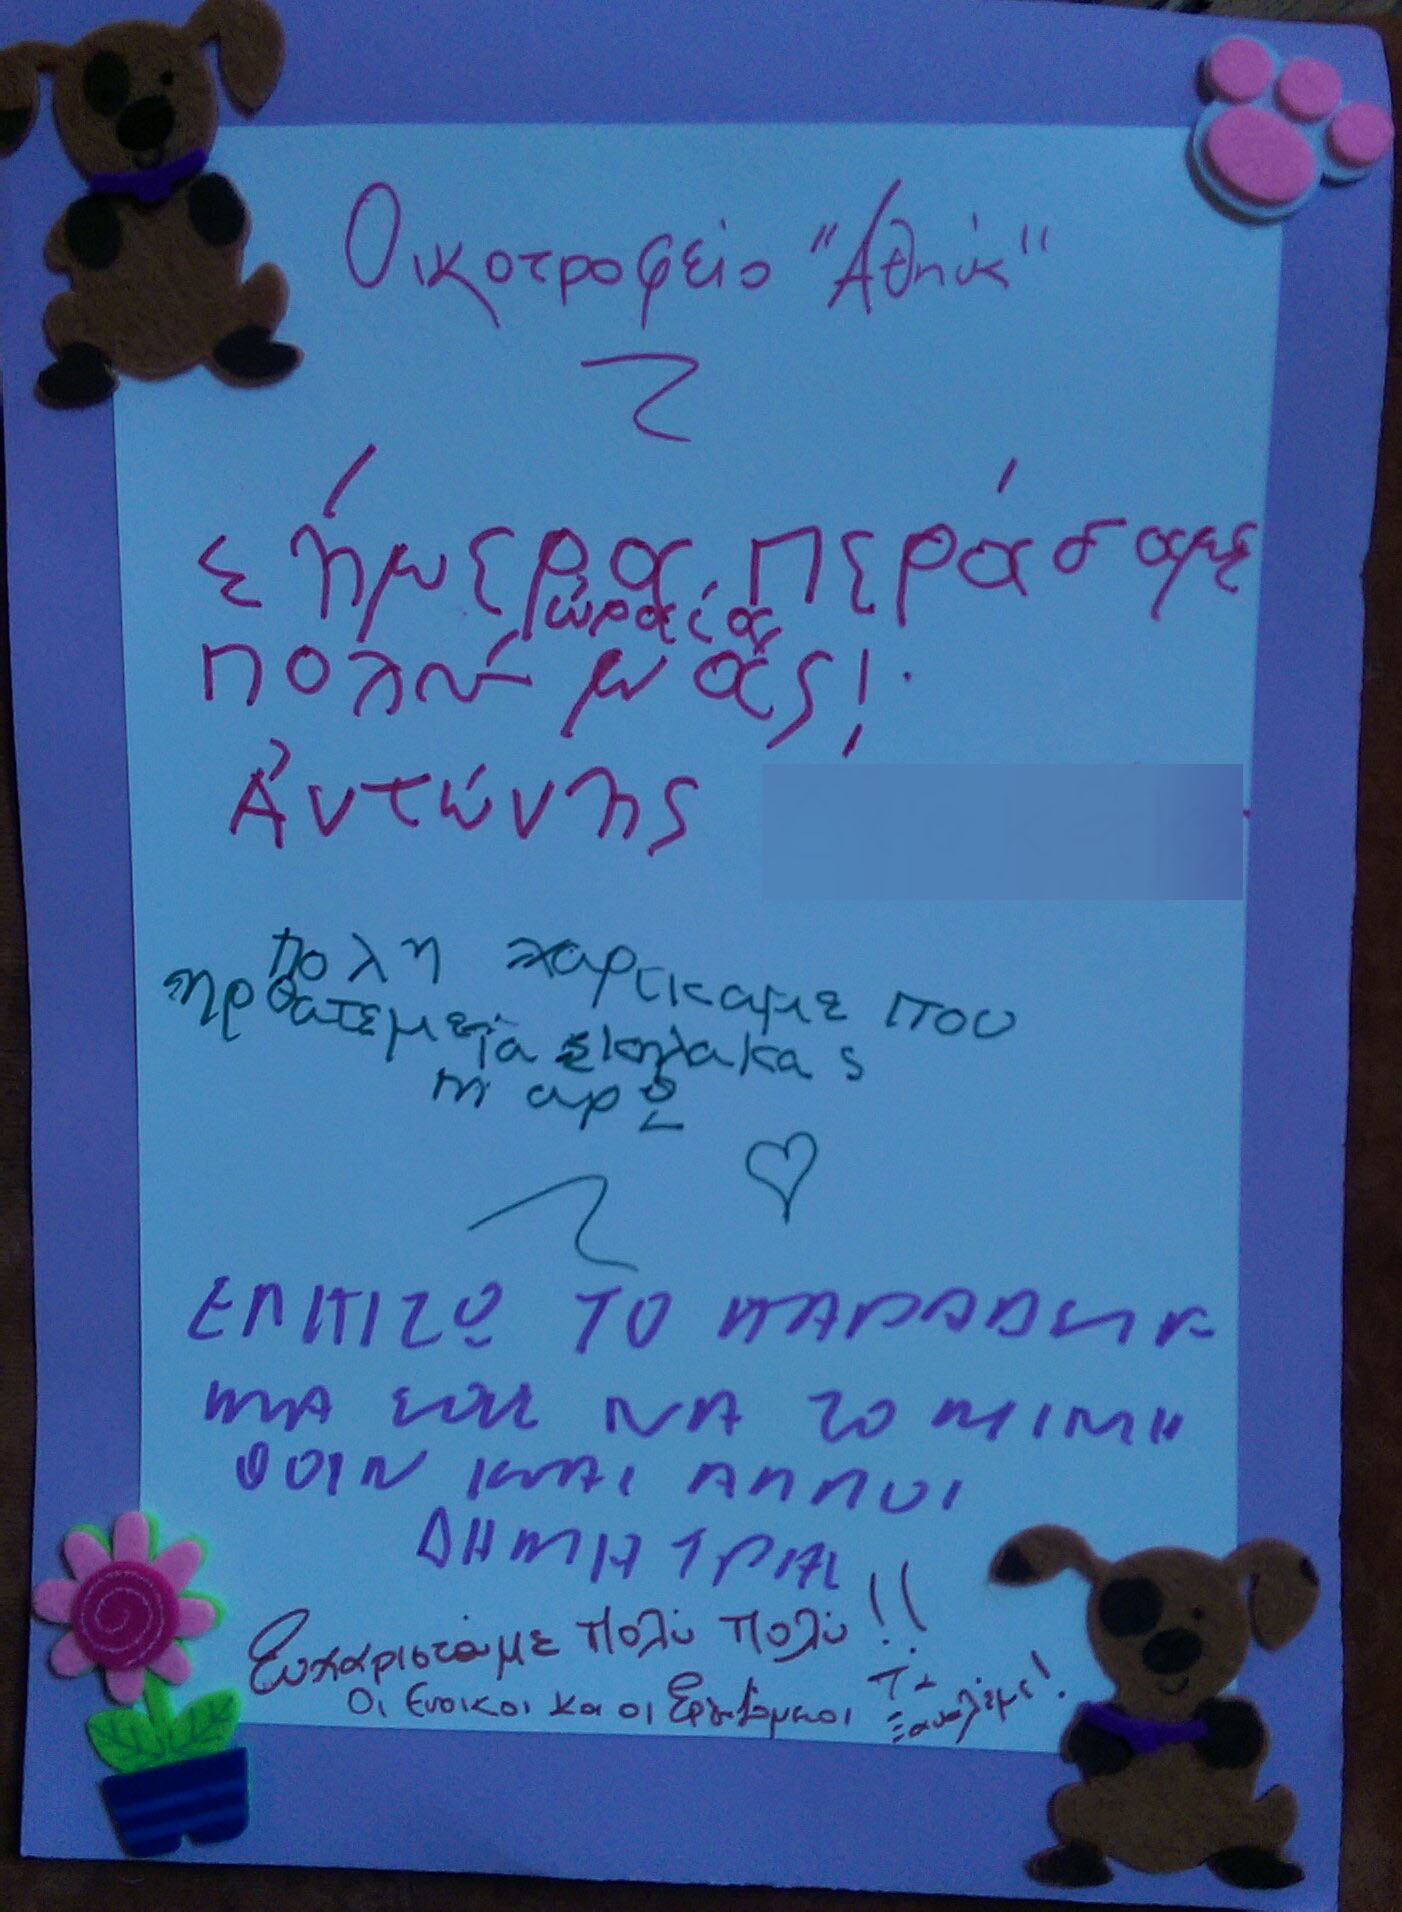 Οικοτροφείο "Αθηνά"
Σήμερα, περάσαμε
ώραία
πολύ μας!.
Ἀντώνης
Πολη χαρικαμε που
ηρθατεμε
τα σκηλακα ς
μαρ
ΕΛΠΙΖΩ ΤΟ ΠΑΡΑΔΕΙΓ
ΜΑ ΣΑΣ ΝΑ ΤΟ ΜΙΜΗ
ΘΟΙΝ ΚΑΙ ΑΛΛΟΙ
ΔΗΜΗΤΡΑ
Ευχαριστούμε πολύ πολύ!!
Οι Ένοικοι και οι Εργαζόμενοι
Τα ξαναλέμε!